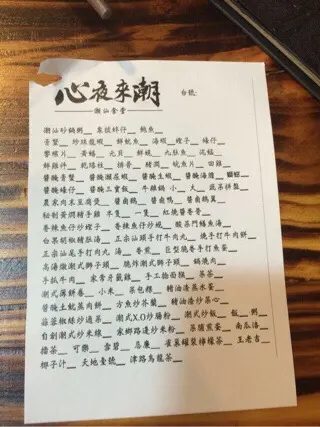 心夜來潮
潮汕食堂
台號:
潮汕砂鍋粥__ 象拔蚌仔__ 鮑魚__
青蟹__ 珍珠龍蝦__ 鮮魷魚__ 海蝦__ 蟶子__ 蠔仔__
擎蝦片__ 黃鱔__ 元貝__ 鮮碱__ 九肚魚__ 泥蜢__
鮮雞件__ 乾瑤柱__ 排骨__ 精潤__ 鯇魚片__ 田雞__
醬醃青蟹__ 醬醃瀨尿蝦__ 醬醃生蝦__ 醬醃海膽__
醬醃蠔仔__ 醬醃三寶飯__ 牛雜鍋 小_ 大_ 蔬菜拼盤__
農家肉末豆腐煲__ 醬鹵鵝__ 醬鹵鴨__ 醬鹵鵝翼__
秘制黃潤精手雞 半隻__ 一隻__ 紅燒醬香骨__
香辣魚仔炒蟶子__ 香辣魚仔炒蜆__ 酸菜門鱔魚湯__
白果胡椒豬肚湯__ 正宗汕頭手打牛肉丸__ 燒手打牛肉餅__
正宗汕尾手打肉丸 湯__ 香煎__ 巨型脆卷手打魚蛋__
高湯燉潮式獅子頭__ 脆炸潮式獅子頭__ 鍋燒肉__
手抓牛肉__ 家常牙籤雞__ 手工拍面粿__ 菜茶__
潮式薄餅卷__ 小米__ 菜包粿__ 豬油渣蒸水蛋__
醬醃土魷蒸肉餅__ 方魚炒芥蘭__ 豬油渣炒菜心__
蒜蓉椒絲炒通菜__ 潮式X.O炒腸粉__ 潮式炒飯__ 飯__ 粥__
自創潮式炒米線__ 家鄉路邊炒米粉__ 菜脯煎蛋__ 南瓜洛__
擂茶__ 可樂__ 雪碧__ 忌廉__ 雀巢罐裝檸檬茶__ 王老吉__
椰子汁__ 天地壹號__ 津路烏龍茶__